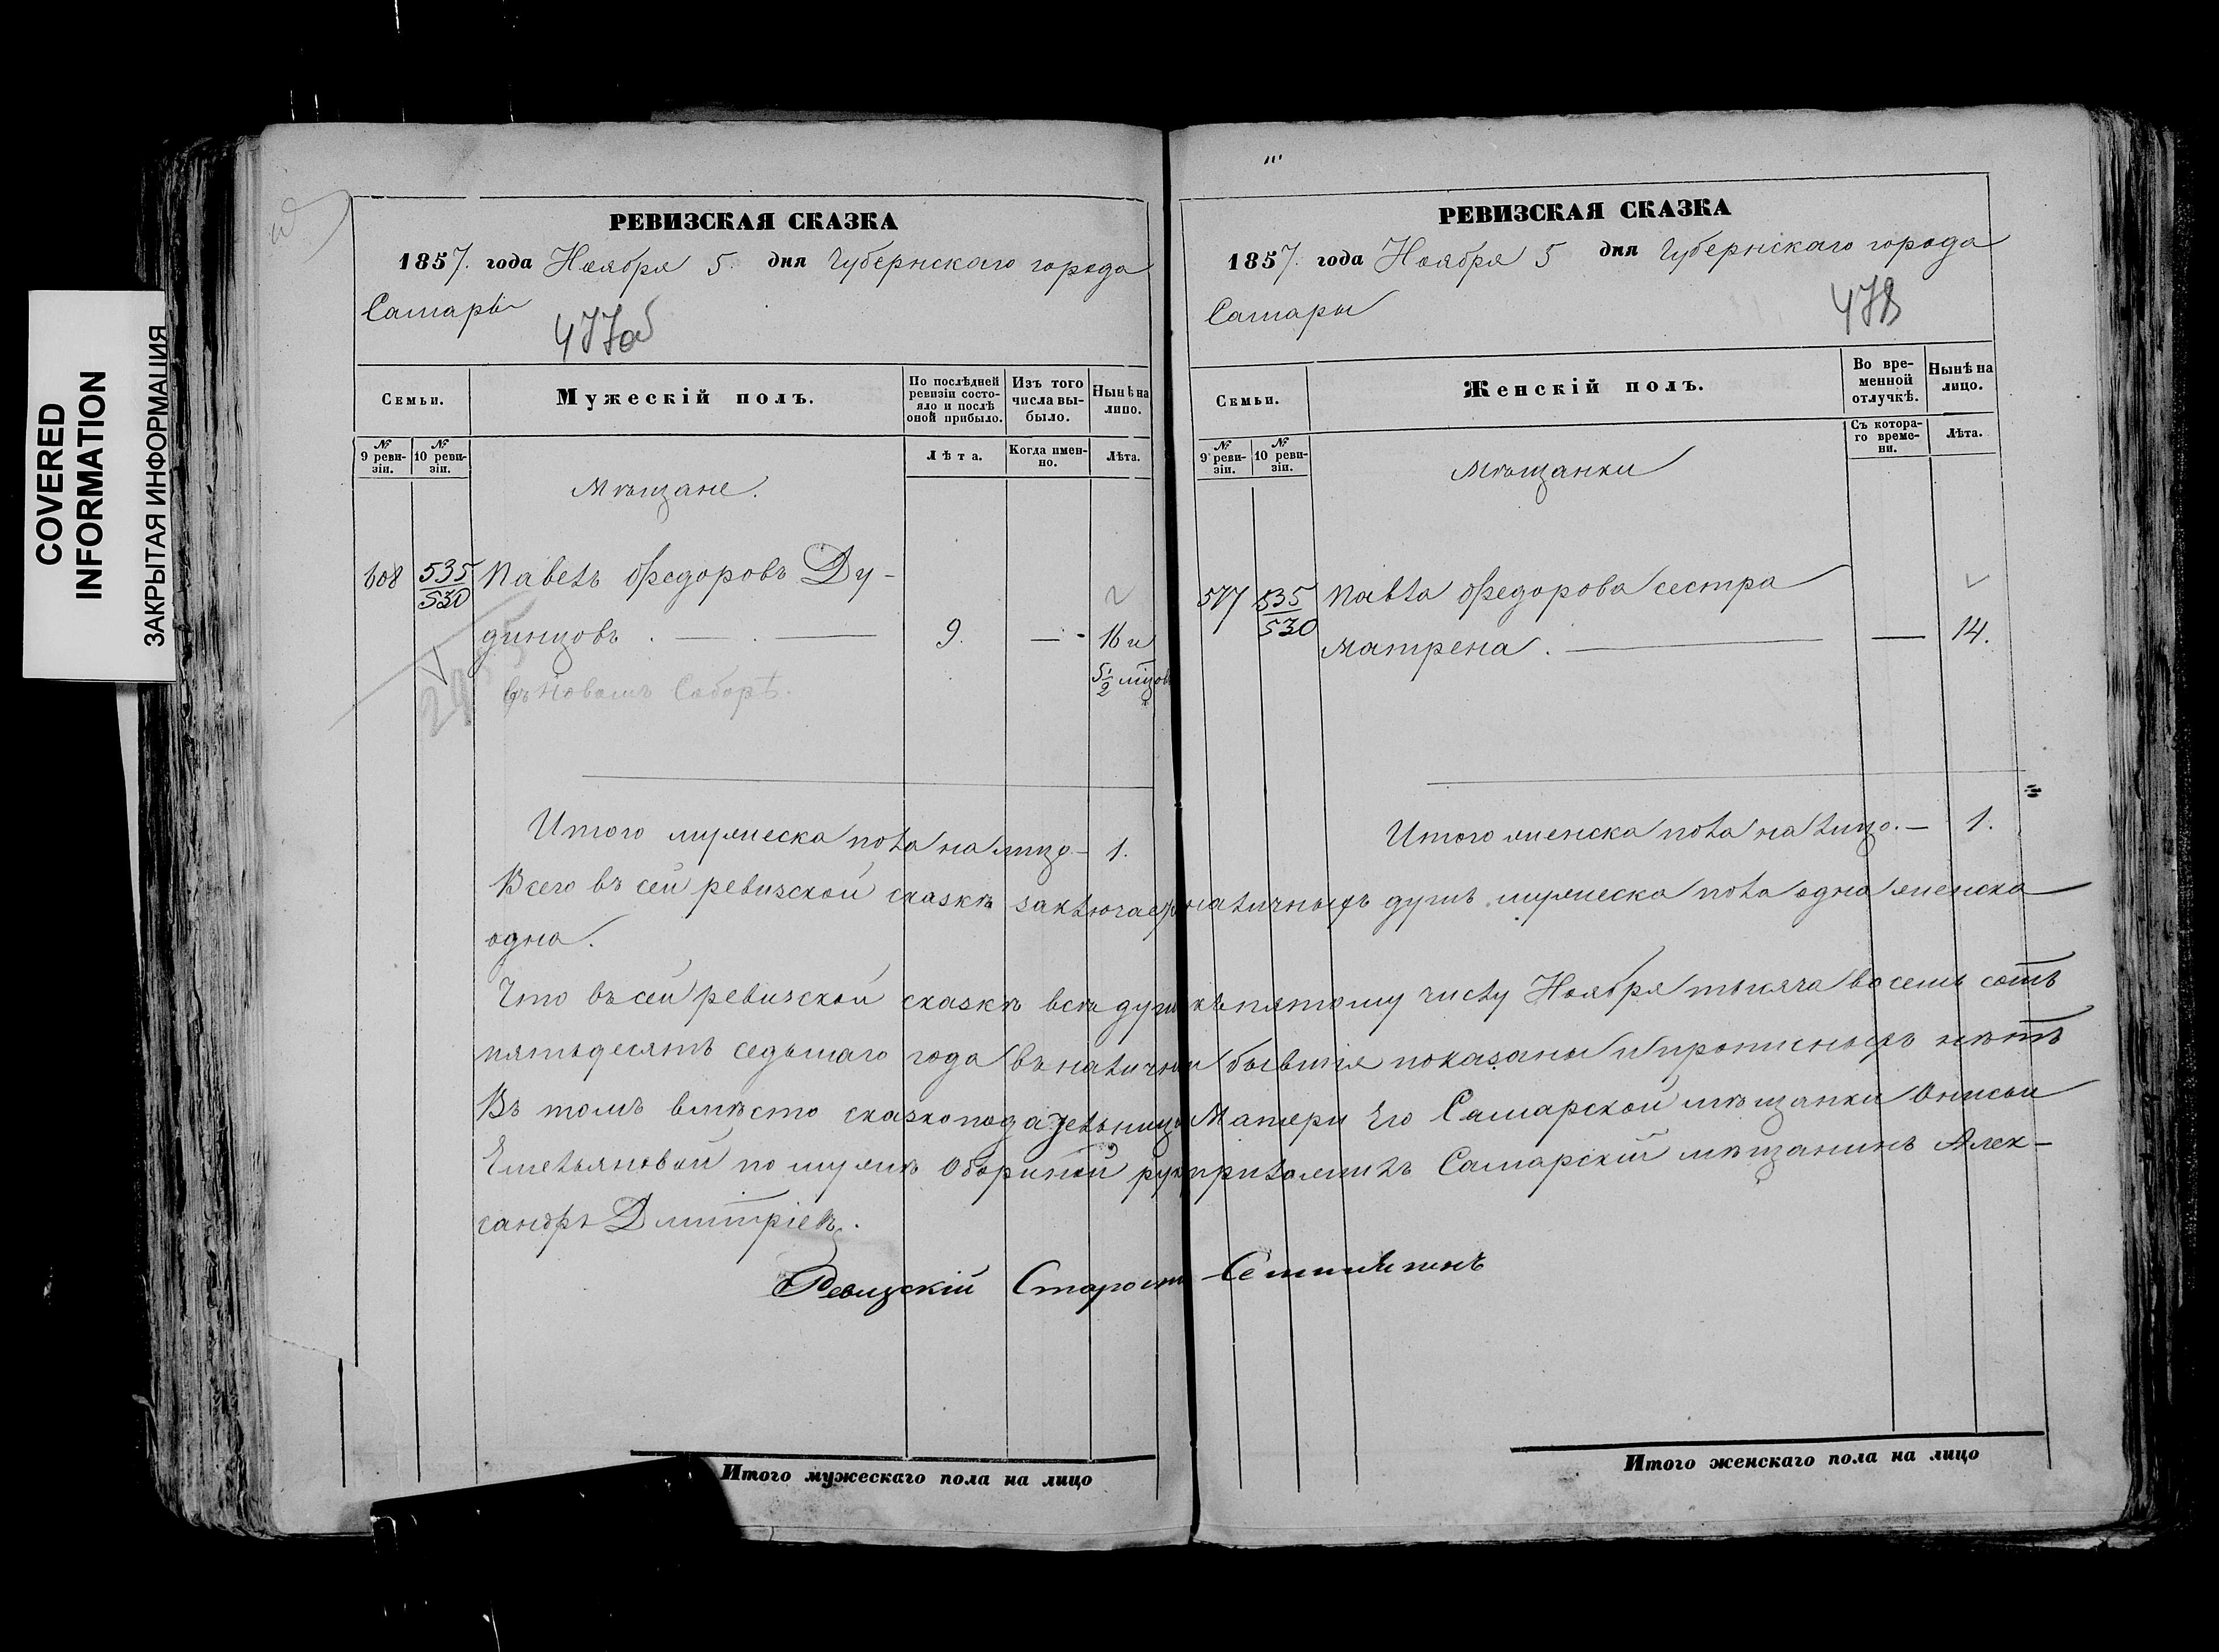 COVERED
INFORMATION
ЗАКРЫТАЯ ИНФОРМАЦИЯ
РЕВИЗСКАЯ СКАЗКА
1857. года Ноября 5 дня Губернскаго города
Самары
477об
Семьи.
Мужескій полъ.
По послѣдней ревизіи состояло и послѣ оной прибыло.
Изъ того числа выбыло.
Нынѣ на лицо.
№ 9 ревизіи.
№ 10 ревизіи.
Лѣта.
Когда именно.
Лѣта.
Мѣщане.
608 535/530 Павелъ Федоровъ Ду-
динцовъ . — . — 9. — 16 и
5 1/2 мцовъ
въ Новомъ Соборѣ.
Итого мужеска пола на лицо — 1.
РЕВИЗСКАЯ СКАЗКА
1857. года Ноября 5 дня Губернскаго города
Самары
478
Семьи.
Женскій полъ.
Во временной отлучкѣ.
Нынѣ на лицо.
№ 9 ревизіи.
№ 10 ревизіи.
Съ котораго времени.
Лѣта.
Мѣщанки
577 535/530 Павла Федорова сестра
Матрена . — — 14.
Итого женска пола на лицо. — 1.
Всего въ сей ревизской сказкѣ заключается наличныхъ душъ мужеска пола одна женска
одна.
Что въ сей ревизской сказкѣ всѣ души къ пятому числу Ноября тысяча восемь сотъ
пятьдесятъ седьмаго года въ наличіи бывшія показаны и прописныхъ нѣтъ
Въ томъ вмѣсто сказкоподательницы Матери Его Самарской мѣщанки Онисьи
Емельяновой по мужѣ руку приложилъ Самарскій мѣщанинъ Алек-
сандръ Дмитріевъ.
Ревизскій Староста
Итого мужескаго пола на лицо
Итого женскаго пола на лицо